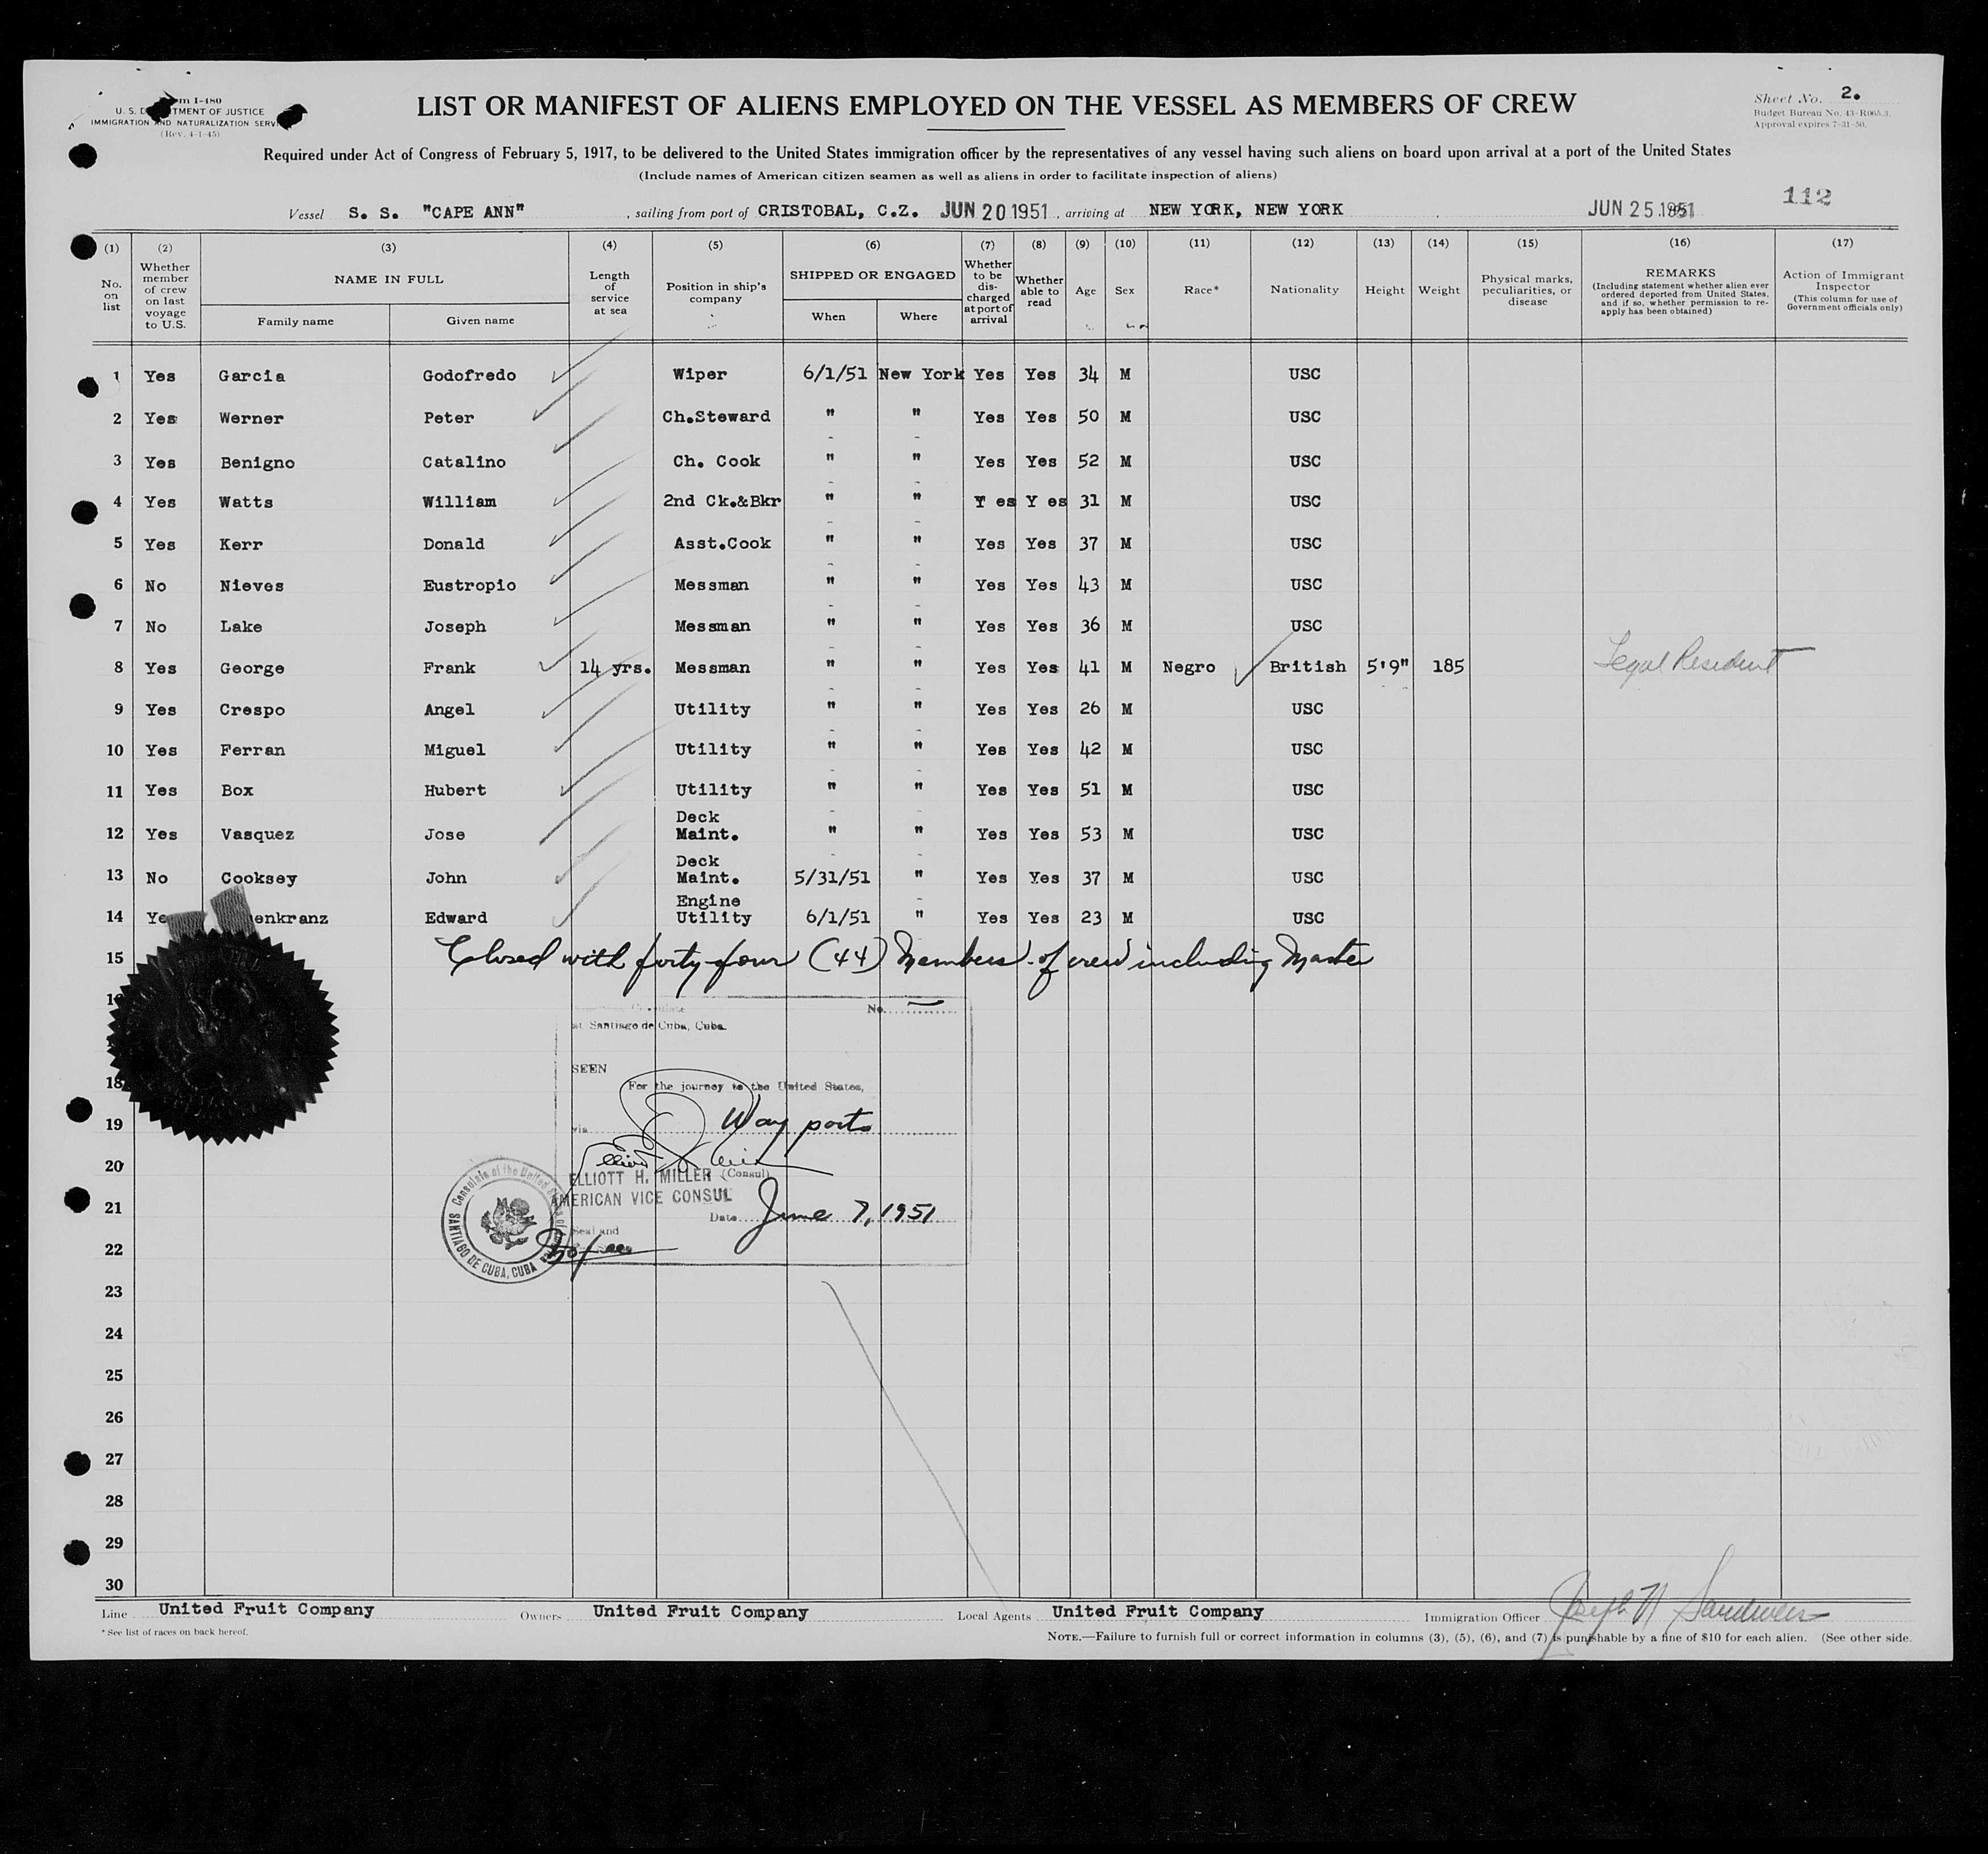 m I-480
U. S. D TMENT OF JUSTICE
IMMIGRATION AND NATURALIZATION SERV
(Rev. 4-1-45)
LIST OR MANIFEST OF ALIENS EMPLOYED ON THE VESSEL AS MEMBERS OF CREW
Sheet No. 2.
Budget Bureau No. 43-R065.3.
Approval expires 7-31-50.
Required under Act of Congress of February 5, 1917, to be delivered to the United States immigration officer by the representatives of any vessel having such aliens on board upon arrival at a port of the United States
(Include names of American citizen seamen as well as aliens in order to facilitate inspection of aliens)
112
Vessel S. S. "CAPE ANN" , sailing from port of CRISTOBAL, C.Z. JUN 20 1951 , arriving at NEW YORK, NEW YORK , JUN 25 1951
(1) (2) (3) (4) (5) (6) (7) (8) (9) (10) (11) (12) (13) (14) (15) (16) (17)
No. on list
Whether member of crew on last voyage to U.S.
NAME IN FULL
Family name Given name
Length of service at sea
Position in ship's company
SHIPPED OR ENGAGED
When Where
Whether to be discharged at port of arrival
Whether able to read
Age
Sex
Race*
Nationality
Height
Weight
Physical marks, peculiarities, or disease
REMARKS
(Including statement whether alien ever ordered deported from United States, and if so, whether permission to re-apply has been obtained)
Action of Immigrant Inspector
(This column for use of Government officials only)
1 Yes Garcia Godofredo Wiper 6/1/51 New York Yes Yes 34 M USC
2 Yes Werner Peter Ch.Steward " " Yes Yes 50 M USC
3 Yes Benigno Catalino Ch. Cook " " Yes Yes 52 M USC
4 Yes Watts William 2nd Ck.&Bkr " " Y es Y es 31 M USC
5 Yes Kerr Donald Asst.Cook " " Yes Yes 37 M USC
6 No Nieves Eustropio Messman " " Yes Yes 43 M USC
7 No Lake Joseph Messman " " Yes Yes 36 M USC
8 Yes George Frank 14 yrs. Messman " " Yes Yes 41 M Negro British 5'9" 185 Legal Resident
9 Yes Crespo Angel Utility " " Yes Yes 26 M USC
10 Yes Ferran Miguel Utility " " Yes Yes 42 M USC
11 Yes Box Hubert Utility " " Yes Yes 51 M USC
12 Yes Vasquez Jose Deck Maint. " " Yes Yes 53 M USC
13 No Cooksey John Deck Maint. 5/31/51 " Yes Yes 37 M USC
14 Ye enkranz Edward Engine Utility 6/1/51 " Yes Yes 23 M USC
15 Closed with forty-four (44) Members of crew including Master
No.
at Santiago de Cuba, Cuba.
SEEN
18 For the journey to the United States,
19 via Way ports
20
ELLIOTT H. MILLER (Consul)
AMERICAN VICE CONSUL
21 Date June 7, 1951
Seal and
SANTIAGO DE CUBA, CUBA
22
23
24
25
26
27
28
29
30
Line United Fruit Company Owners United Fruit Company Local Agents United Fruit Company Immigration Officer
* See list of races on back hereof.
NOTE.—Failure to furnish full or correct information in columns (3), (5), (6), and (7) is punishable by a fine of $10 for each alien. (See other side.